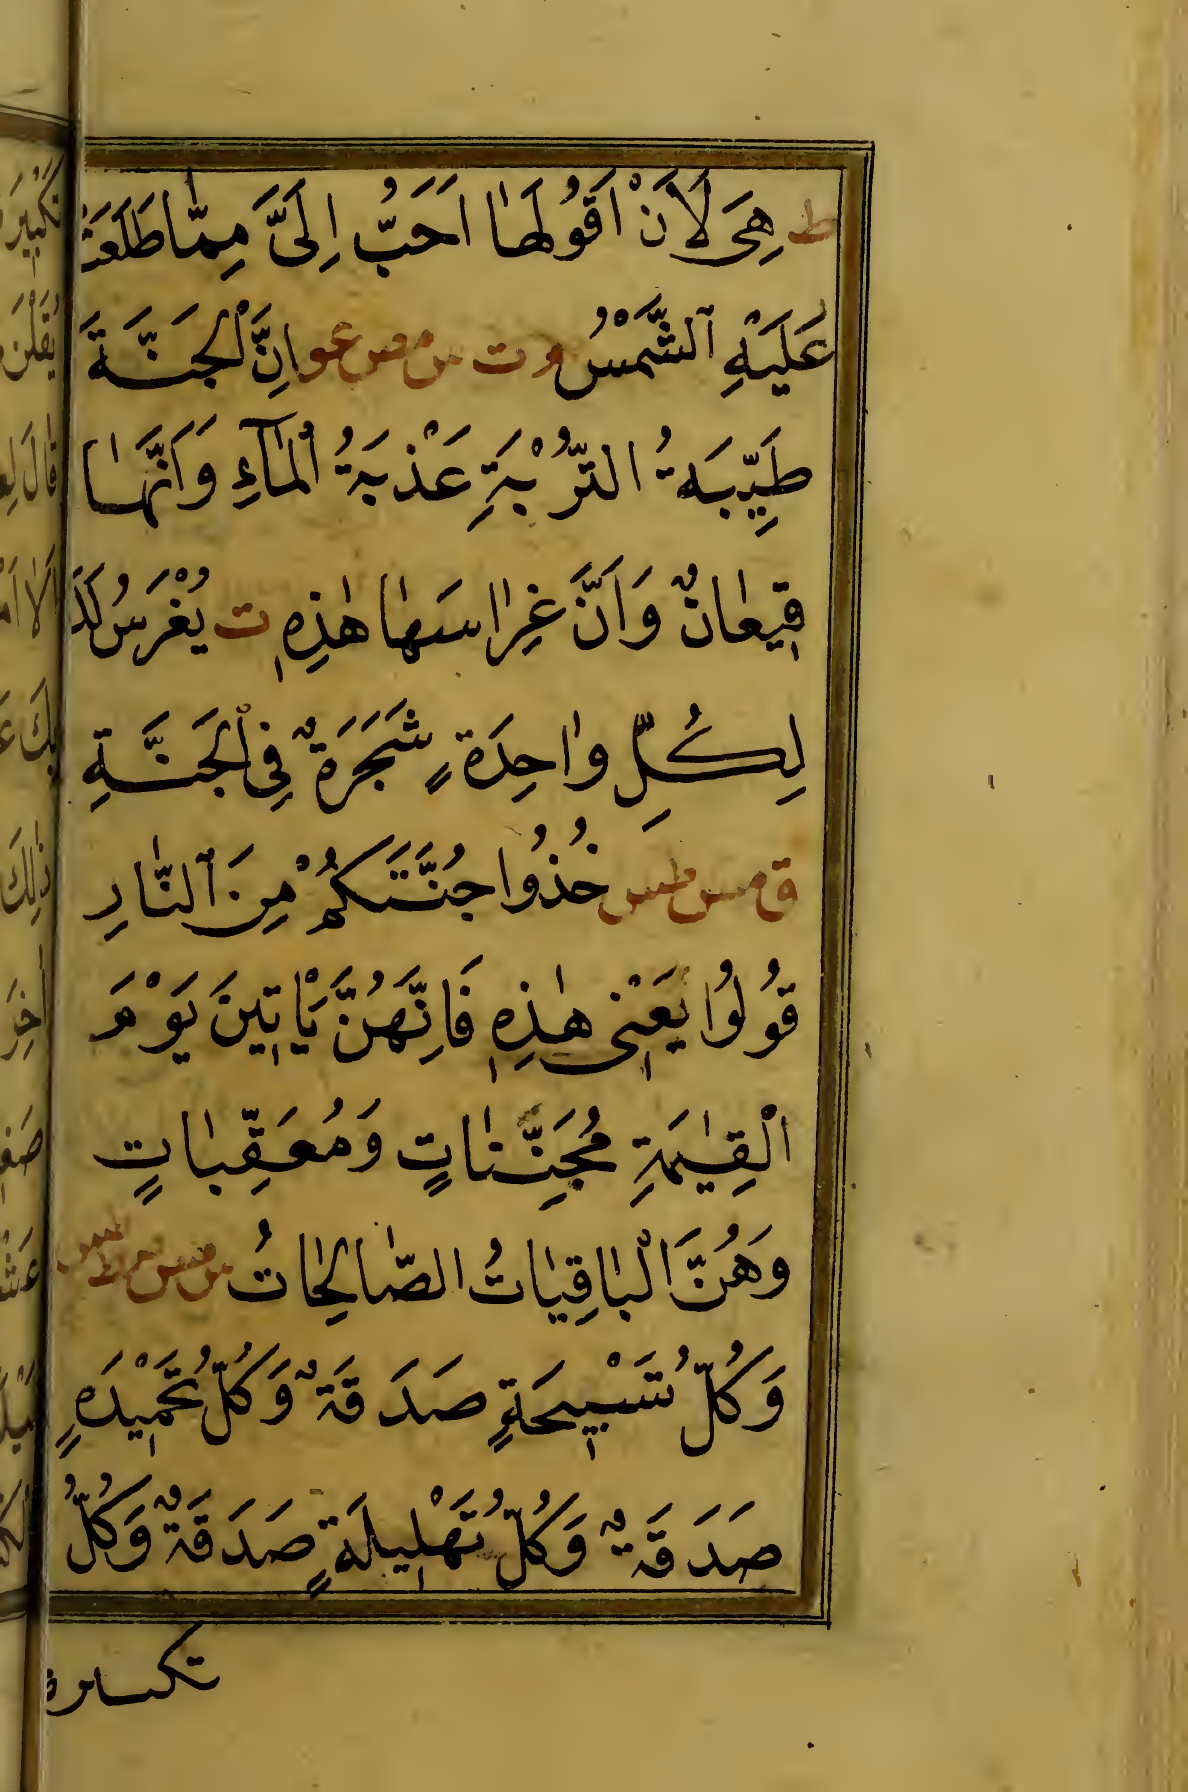 ط هِىَ لَاَنْ اَقُولَهٰا اَحَبُّ اِلَىَّ مِمّٰا طَلَعَتْ
عَلَيْهِ الشَّمْسُ م ت س مص عو اِنَّ الْجَنَّةَ
طَيِّبَةُ التُّرْبَةِ عَذْبَةُ الْمٰآءِ وَاَنَّهٰا
قيعٰانٌ وَاَنَّ غِرٰاسَهٰا هٰذِهِ ت يُغْرَسُ لَهُ
لِكُلِّ وٰاحِدَةٍ شَجَرَةٌ فِى الْجَنَّةِ
ق مس طس خُذُوا جُنَّتَكُمْ مِنَ النّٰارِ
قُولُوا يَعْنى هٰذِهِ فَاِنَّهُنَّ يَاْتينَ يَوْمَ
الْقِيٰمَةِ مُجَنِّبٰاتٍ وَمُعَقِّبٰاتٍ
وَهُنَّ الْبٰاقِيٰاتُ الصّٰالِحٰاتُ س مس صط طس
وَكُلُّ تَسْبيحَةٍ صَدَقَةٌ وَكُلُّ تَحْميدَةٍ
صَدَقَةٌ وَكُلُّ تَهْليلَةٍ صَدَقَةٌ وَكُلُّ
تكبيرة